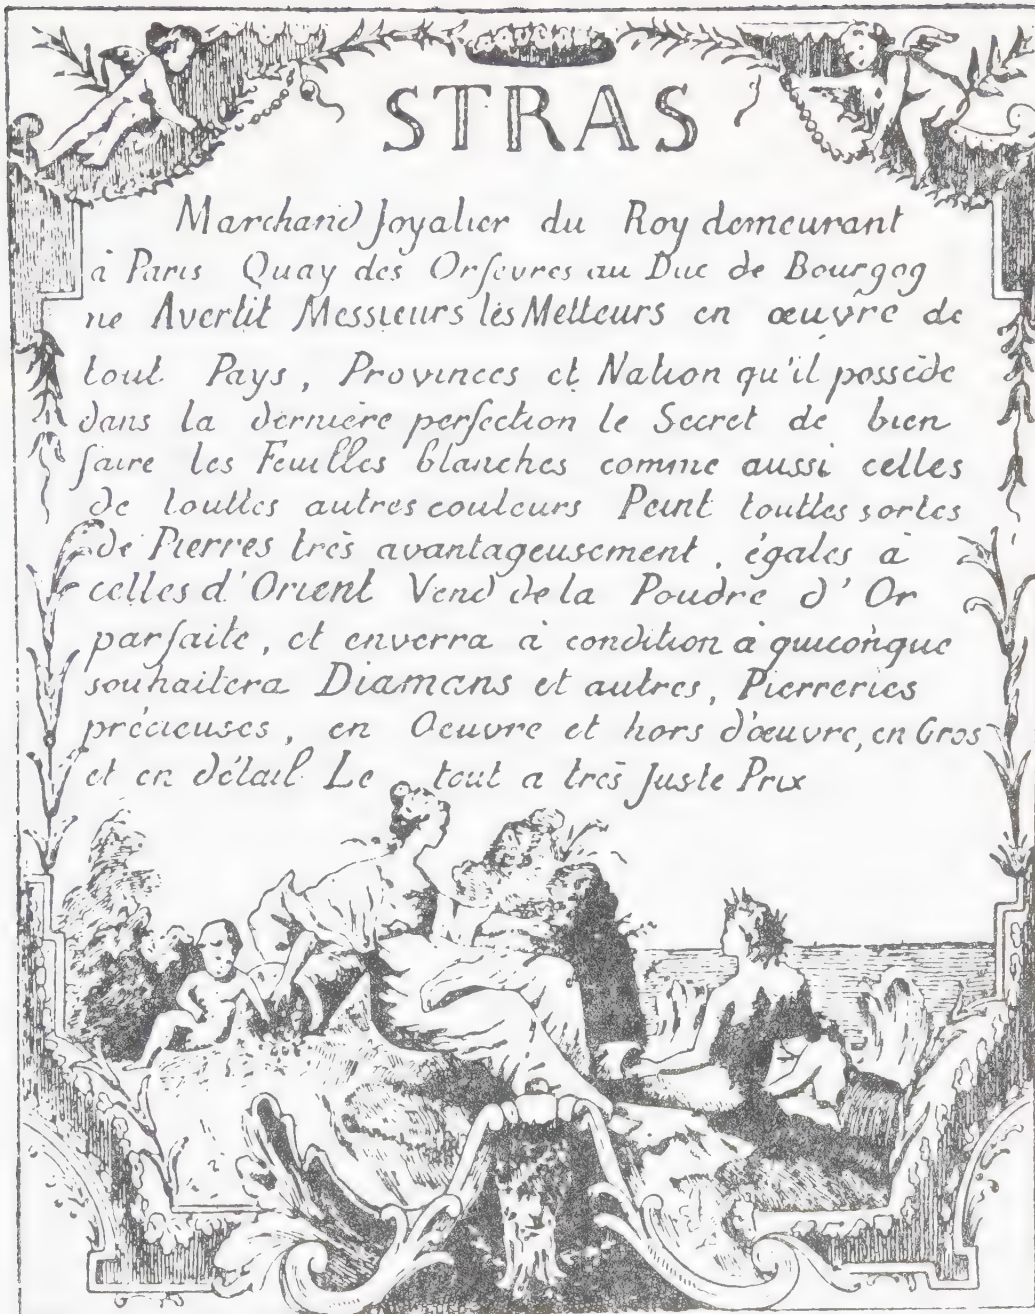 STRAS
Marchand Joyalier du Roy demeurant
à Paris Quay des Orfevres au Duc de Bourgog
ne Avertit Messieurs les Metteurs en œuvre de
tout Pays, Provinces et Nation qu'il possède
dans la dernière perfection le Secret de bien
faire les Feuilles blanches comme aussi celles
de touttes autres couleurs Peint touttes sortes
de Pierres très avantageusement, égales à
celles d'Orient Vend de la Poudre d'Or
parfaite, et enverra à condition à quiconque
souhaitera Diamans et autres, Pierreries
précieuses, en Oeuvre et hors d'œuvre, en Gros
et en détail Le tout a très Juste Prix